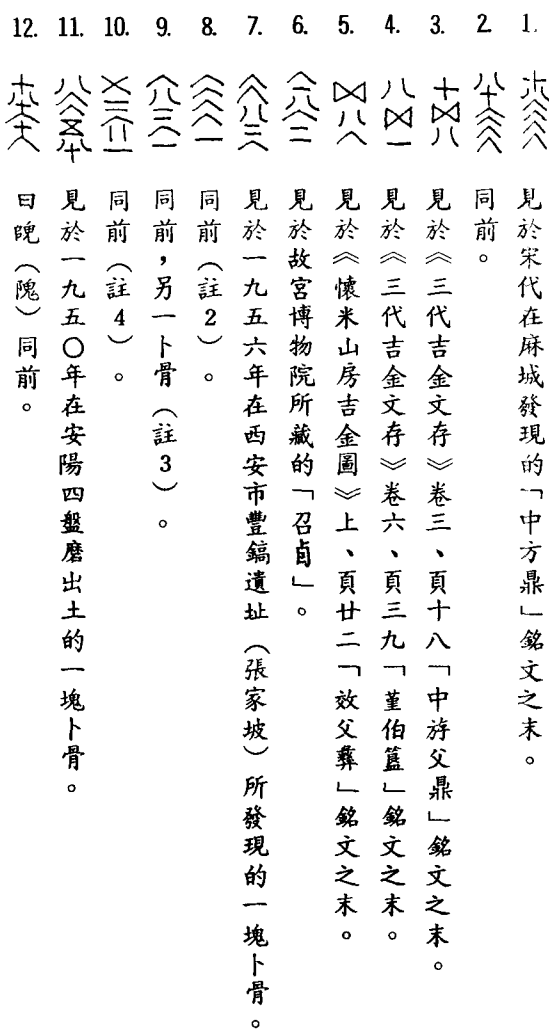 1. 見於宋代在麻城發現的「中方鼎」銘文之末。
2. 同前。
3. 見於《三代吉金文存》卷三、頁十八「中斿父鼎」銘文之末。
4. 見於《三代吉金文存》卷六、頁三九「堇伯簋」銘文之末。
5. 見於《懷米山房吉金圖》上、頁廿二「效父彝」銘文之末。
6. 見於故宮博物院所藏的「召卣」。
7. 見於一九五六年在西安市豐鎬遺址（張家坡）所發現的一塊卜骨。
8. 同前（註2）。
9. 同前，另一卜骨（註3）。
10. 同前（註4）。
11. 見於一九五〇年在安陽四盤磨出土的一塊卜骨。
12. 曰（隗）同前。